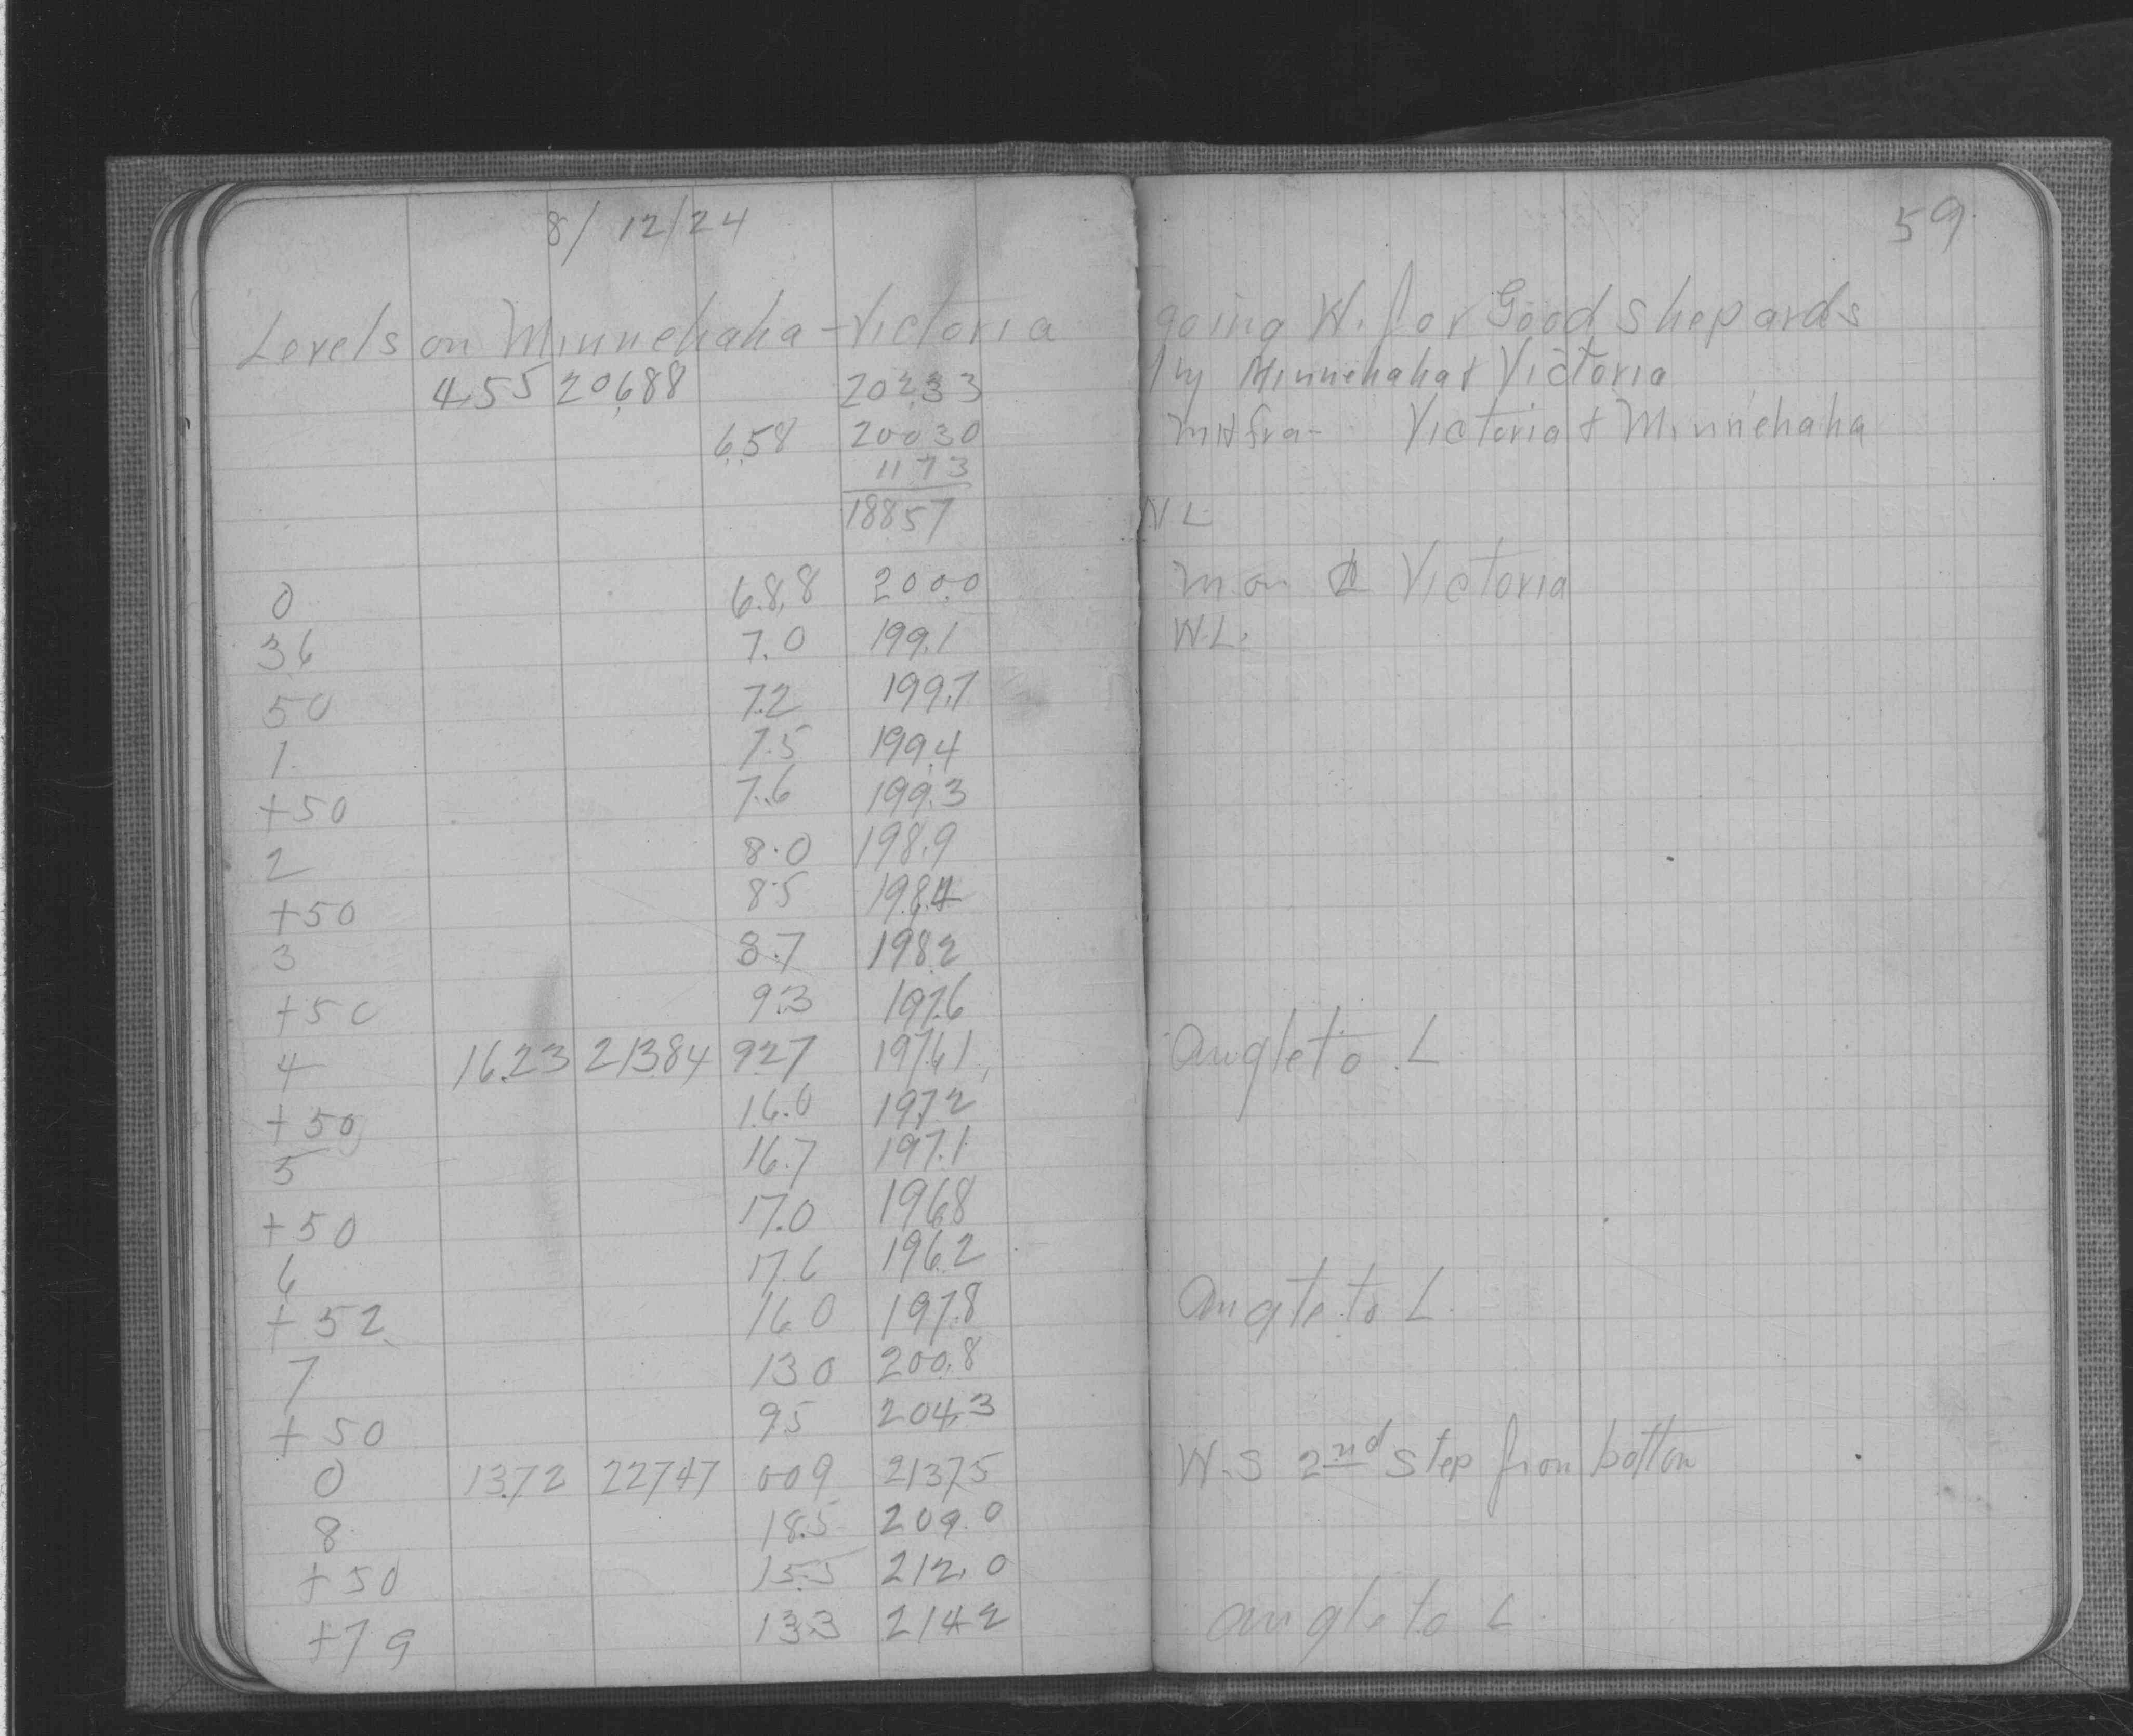 8/12/24
59
Levels on Minnehaha - Victoria going W. for Good Shepards
4.55 206.88 202.33 Hy Minnehaha & Victoria
6.58 200.30 Victoria & Minnehaha
11 73
188 57 N L
0 6.8,8 200.0 Victoria
36 7.0 199.1 W.L.
50 7.2 199.7
1 7.5 199.4
+50 7.6 199.3
2 8.0 198.9
+50 8.5 198.4
3 8.7 198.2
+50 9.3 197.6
4 16.23 213.84 9.27 197.61 Angle to L
+50 16.6 197.2
5 16.7 197.1
+50 17.0 196.8
6 17.6 196.2
+52 16.0 197.8 Angle to L
7 13.0 200.8
+50 9.5 204.3
0 13.72 227.47 0 09 213.75 W.S 2nd step from bottom
8 18.5 209.0
+50 15.5 212.0
+79 13.3 214.2 angle to L